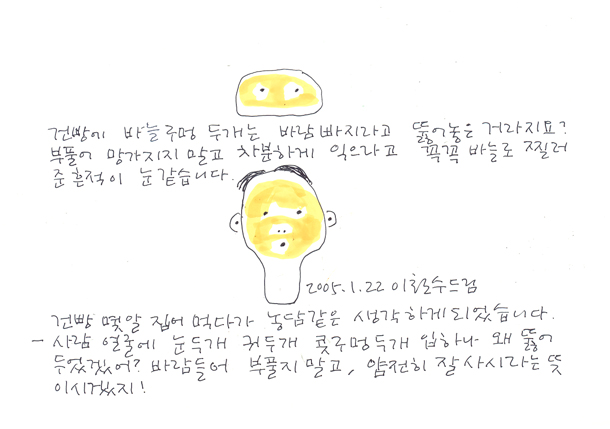 건빵에 바늘구멍 두개는 바람 빠지라고 뚫어놓은 거라지요?
부풀어 망가지지 말고 차분하게 익으라고 꼭꼭 바늘로 찔러
준 흔적이 눈같습니다.
2005.1.22 이철수드림
건빵 몇알 집어 먹다가 농담같은 생각하게되었습니다.
- 사람 얼굴에 눈두개 귀두개 콧구멍두개 입하나 왜 뚫어
두었겠어? 바람들어 부풀지 말고, 얌전히 잘 사시라는 뜻
이시겠지!